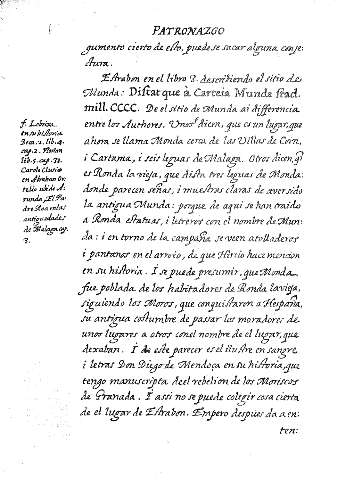 PATRONAZGO
gumento cierto de esto, puedese sacar alguna conje
ctura.
Estrabon en el libro 3. describiendo el sitio de
Munda: Distatque à Carteia Munda stad.
mill. CCCC. De el sitio de Munda ai differencia
entre los Authores. Unos dicen, que es un lugar, que
ahora se llama Monda cerca de las Villas de Coin,
i Cartama, i seis leguas de Malaga. Otros dicen, q̃
es Ronda la vieja, que dista tres leguas de Monda:
donde parecen señas, i muestras claras de aver sido
la antigua Munda: porque de aqui se han traido
a Ronda estatuas, i letreros con el nombre de Mun-
da: i en torno de la campaña se veen atolladeros
i pantanos en el arroio, de que Hircio hace mencion
en su historia. I se puede presumir, que Monda
fue poblada de los habitadores de Ronda la vieja,
siguiendo los Moros, que conquistaron a Hespaña,
su antigua costumbre de passar los moradores de
unos lugares a otros con el nombre de el lugar, que
dexaban. I de este parecer es el ilustre en sangre
i letras Don Diego de Mendoça en su historia, que
tengo manuscripta de el rebelion de los Moriscos
de Granada. I assi no se puede colegir cosa cierta
de el lugar de Estrabon. Empero despues da a en-
ten:
en su historia
lib. 4.
cap. 2.
lib. 5. cap. 72.
Carolo Clusio
en
antiguedades
de Malaga cap.
3.